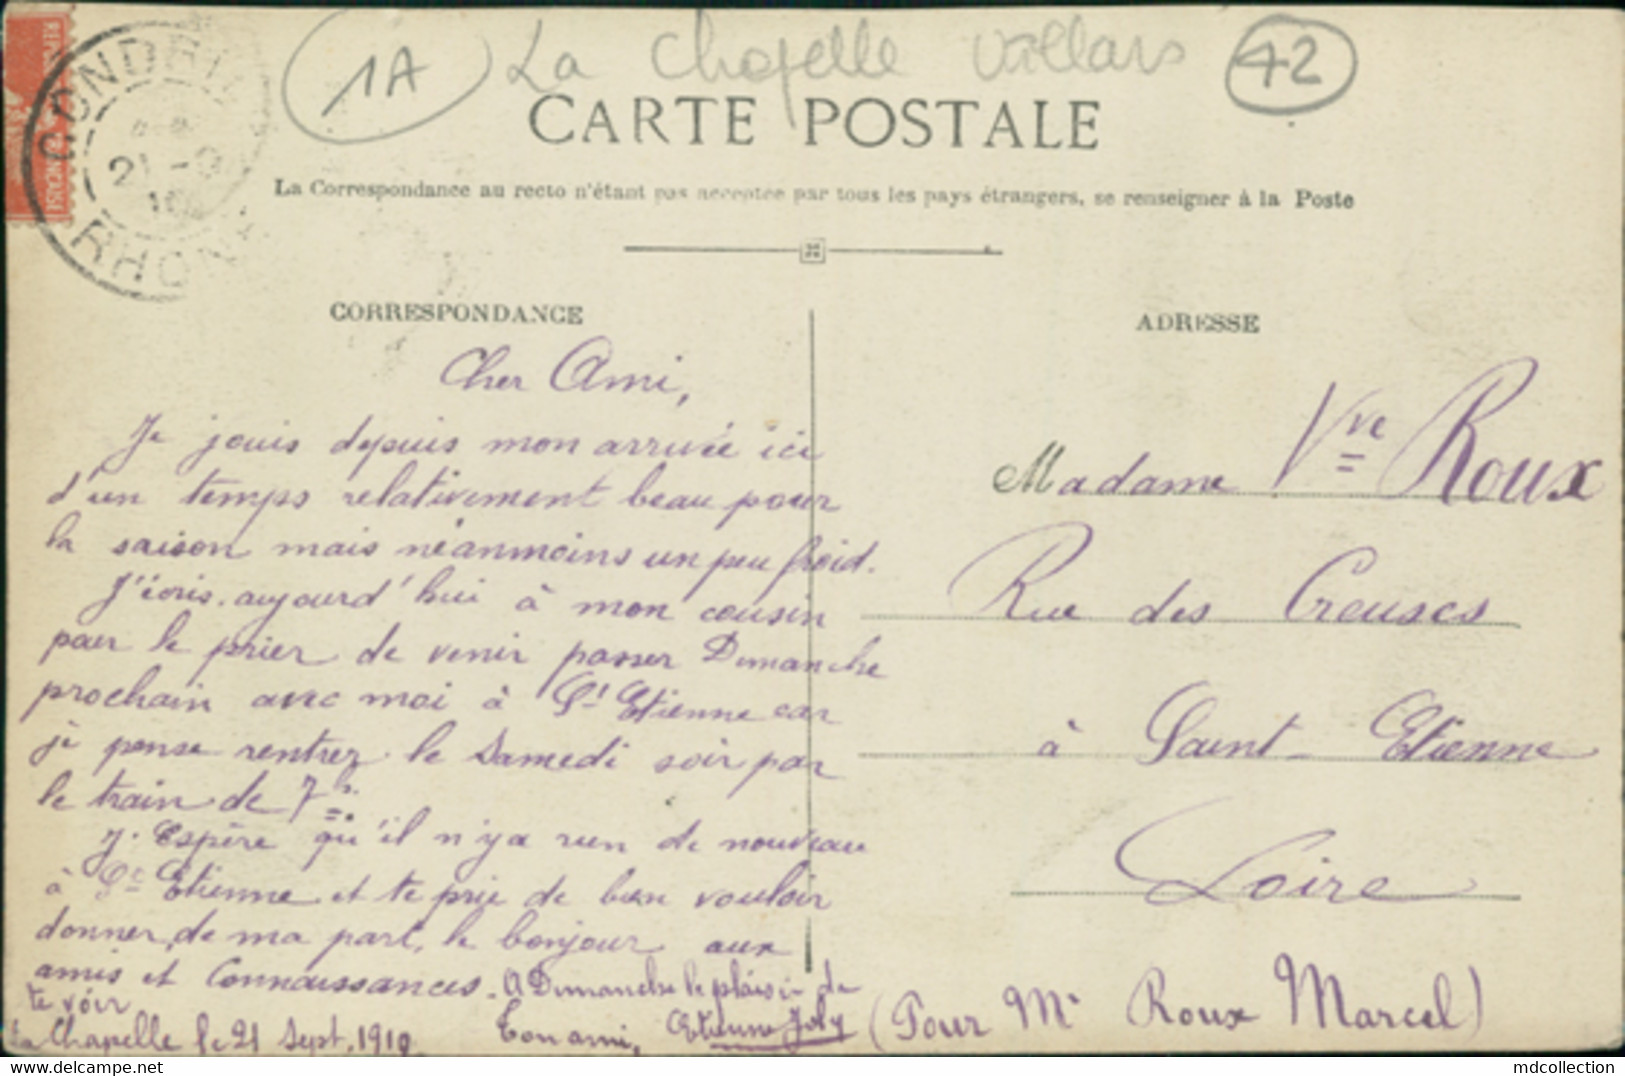 1A La Chapelle Villars 42
CARTE POSTALE
La Correspondance au recto n'étant pas acceptée par tous les pays étrangers, se renseigner à la Poste
CONDRIEU
21 -9
10
RHONE
CORRESPONDANCE
Cher Ami,
Je jouis depuis mon arrivée ici
d'un temps relativement beau pour
la saison mais néanmoins un peu froid.
J'écris aujourd'hui à mon cousin
pour le prier de venir passer Dimanche
prochain avec moi à St Etienne car
je pense rentrer le Samedi soir par
le train de 7h.
J'Espère qu'il n'y a rien de nouveau
à St Etienne et te prie de bien vouloir
donner de ma part, le bonjour aux
amis et Connaissances. A Dimanche le plaisir de
te voir
La Chapelle le 21 Sept. 1910
Ton ami, Etienne Joly
ADRESSE
Madame Vve Roux
Rue des Creuses
à Saint-Etienne
Loire
(Pour Mr Roux Marcel)
mdcollection